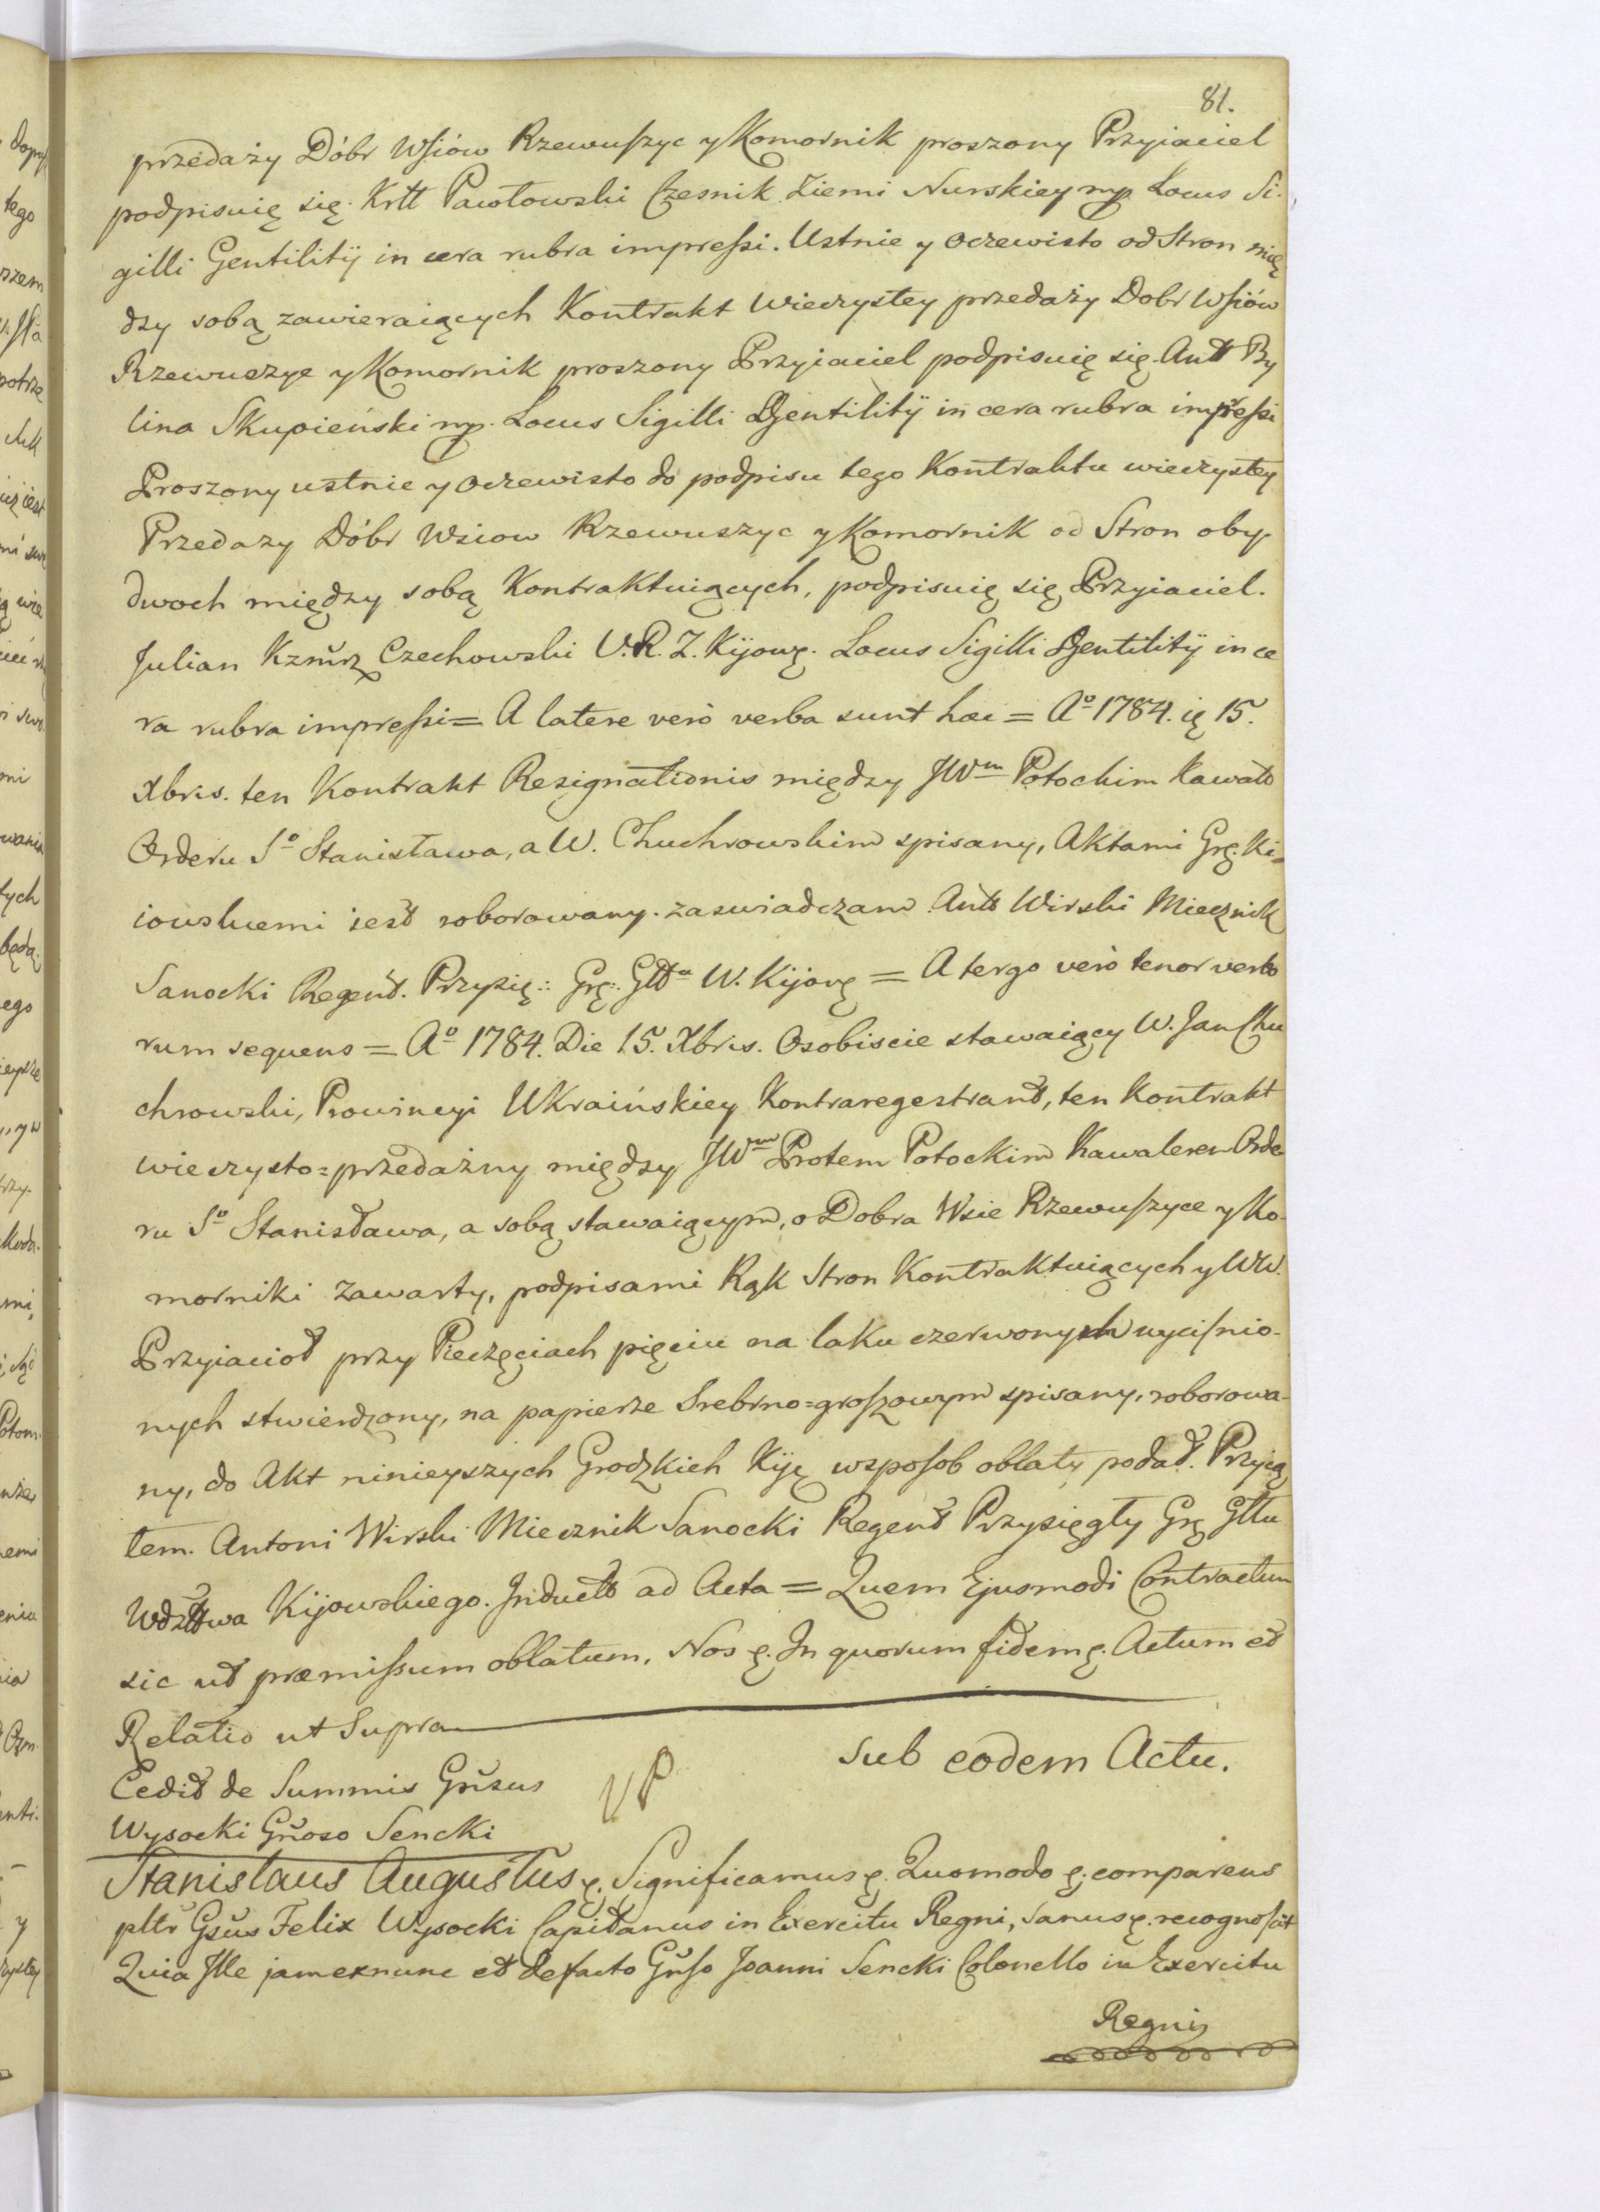 81.
przedaży Dóbr Wsiów Rzewuszyc y Komornik proszony Przyiaciel
podpisuię się. Krtt Pawłowski Czesnik Ziemi Nurskiey mp. Locus Si-
gilli Gentilitÿ in cera rubra impressi. Ustnie y oczewisto od Stron mię
dzy sobą zawieraiących Kontrakt wieczystey przedaży Dobr Wsiów
Rzewuszyc y Komornik proszony Przyiaciel podpisuię się. Antt By
lina Skupieński mp. Locus Sigilli Gentilitÿ in cera rubra impressi
Proszony ustnie y oczewisto do podpisu tego Kontraktu wieczystey
Przedazy Dóbr Wsiow Rzewuszyc y Komornik od Stron oby-
dwoch między sobą Kontraktuiących, podpisuię się Przyiaciel.
Julian Kzmrz Czechowski V. R. Z. Kijowg. Locus Sigilli Gentilitÿ in ce
ra rubra impressi = A latere verò verba sunt hæc = Aº 1784. ię 15.
Xbris. ten Kontrakt Resignationis między JWm Potockim Kawało
Orderu Sº Stanisława, a W. Chuchrowskim spisany, Aktami Grg. Ki-
iowskiemi iest roborowany. zaswiadczam Antt Wirski Miecznik
Sanocki Regent. Przysię: Grg: Gttu W. Kijowg = A tergo verò tenor verbo
rum sequens = Aº 1784. Die 15. Xbris. Osobiscie stawaiący W. Jan Chu
chrowski, Prowincyi Ukraińskiey Kontraregestrant, ten Kontrakt
wieczysto=przedażny między JWm Protem Potockim Kawalerem Orde
ru Sº Stanisława, a sobą stawaiącym, o Dobra Wsie Rzewuszyce y Ko-
morniki zawarty, podpisami Rąk Stron Kontraktuiących y WW.
Przyiacioł przy Pieczęciach pięciu na laku czerwonych wyciśnio-
nych stwierdzony, na papierze Srebrno=groszowym spisany, roborowa-
ny, do Akt ninieyszych Grodzkich Kijg wsposob oblaty podał. Przyią
łem. Antoni Wirski Miecznik Sanocki Regent Przysięgły Grg Gttu
Wdzttwa Kijowskiego. Inductt ad Acta = Quem Ejusmodi Contractum
sic ut præmissum oblatum, Nos g. In quorum fidem g. Actum et
Relatio ut Supra
Sub eodem Actu.
Cedit de Summis Grusus
Wysocki Gnoso Sencki
VP
Stanislaus Augustus g. Significamus g. Quomodo g. comparens
pltr Gsus Felix Wysocki Capitanus in Exercitu Regni, sanus g. recognoscit
Quia Ille jam exnunc et defacto Gnso Joanni Sencki Colonello in Exercitu
Regni